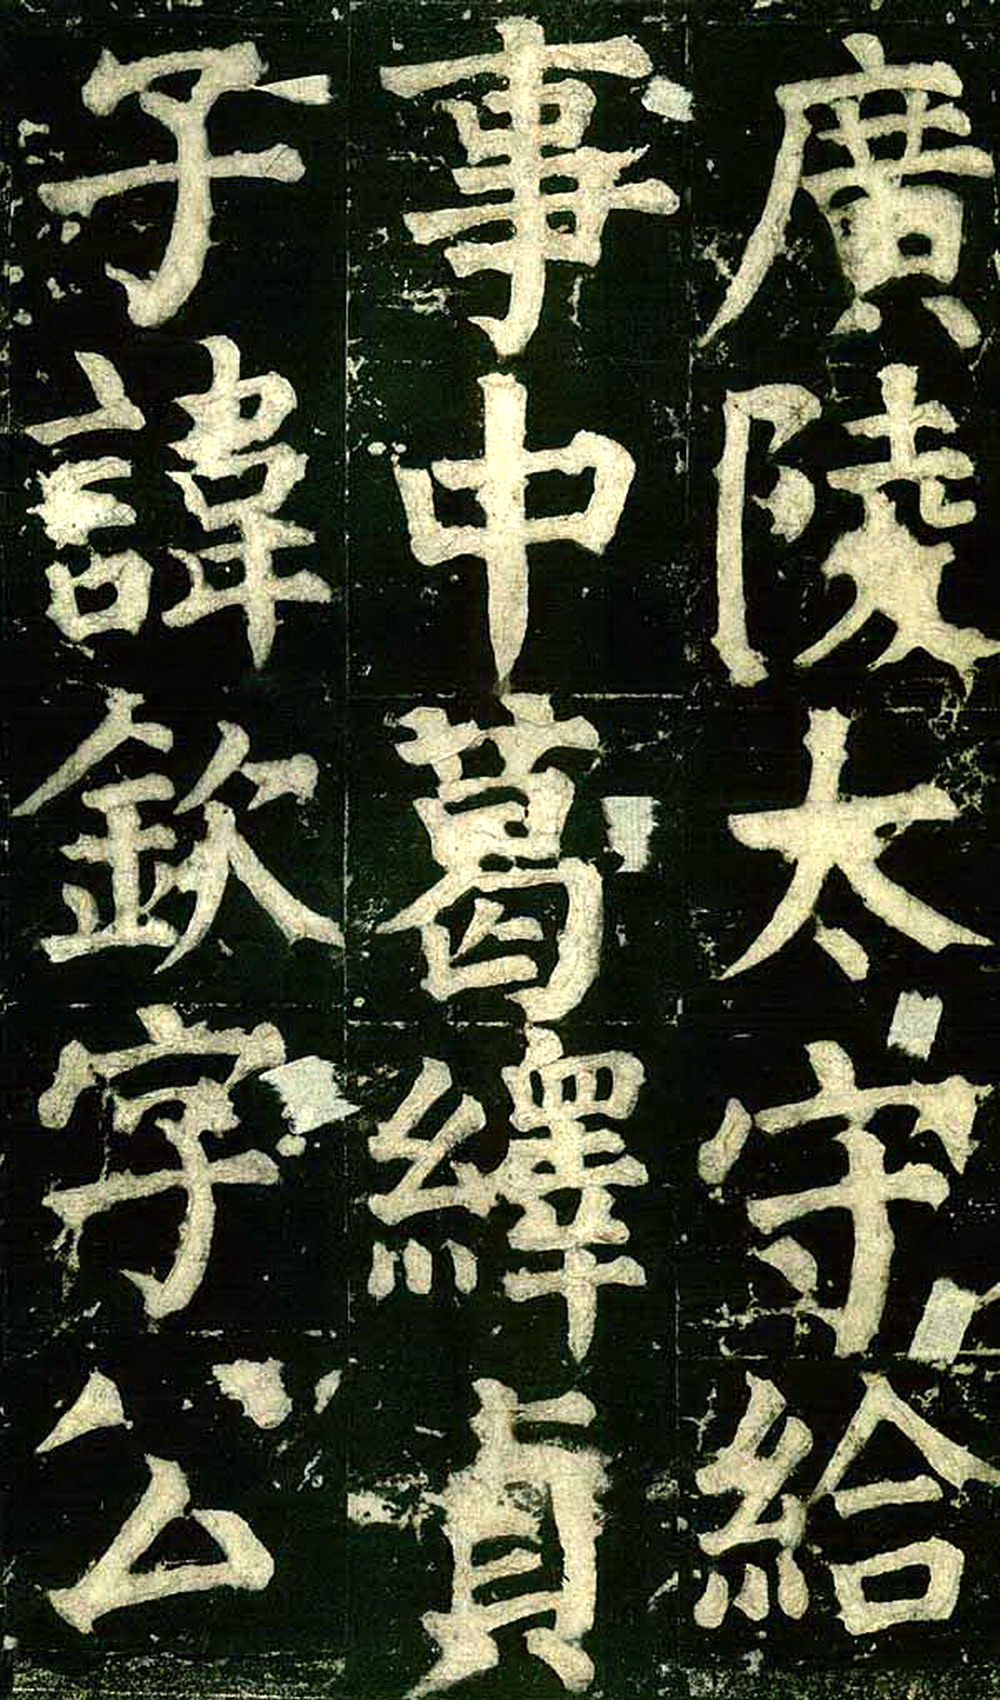 廣陵太守給
事中葛繹貞
子諱欽字公